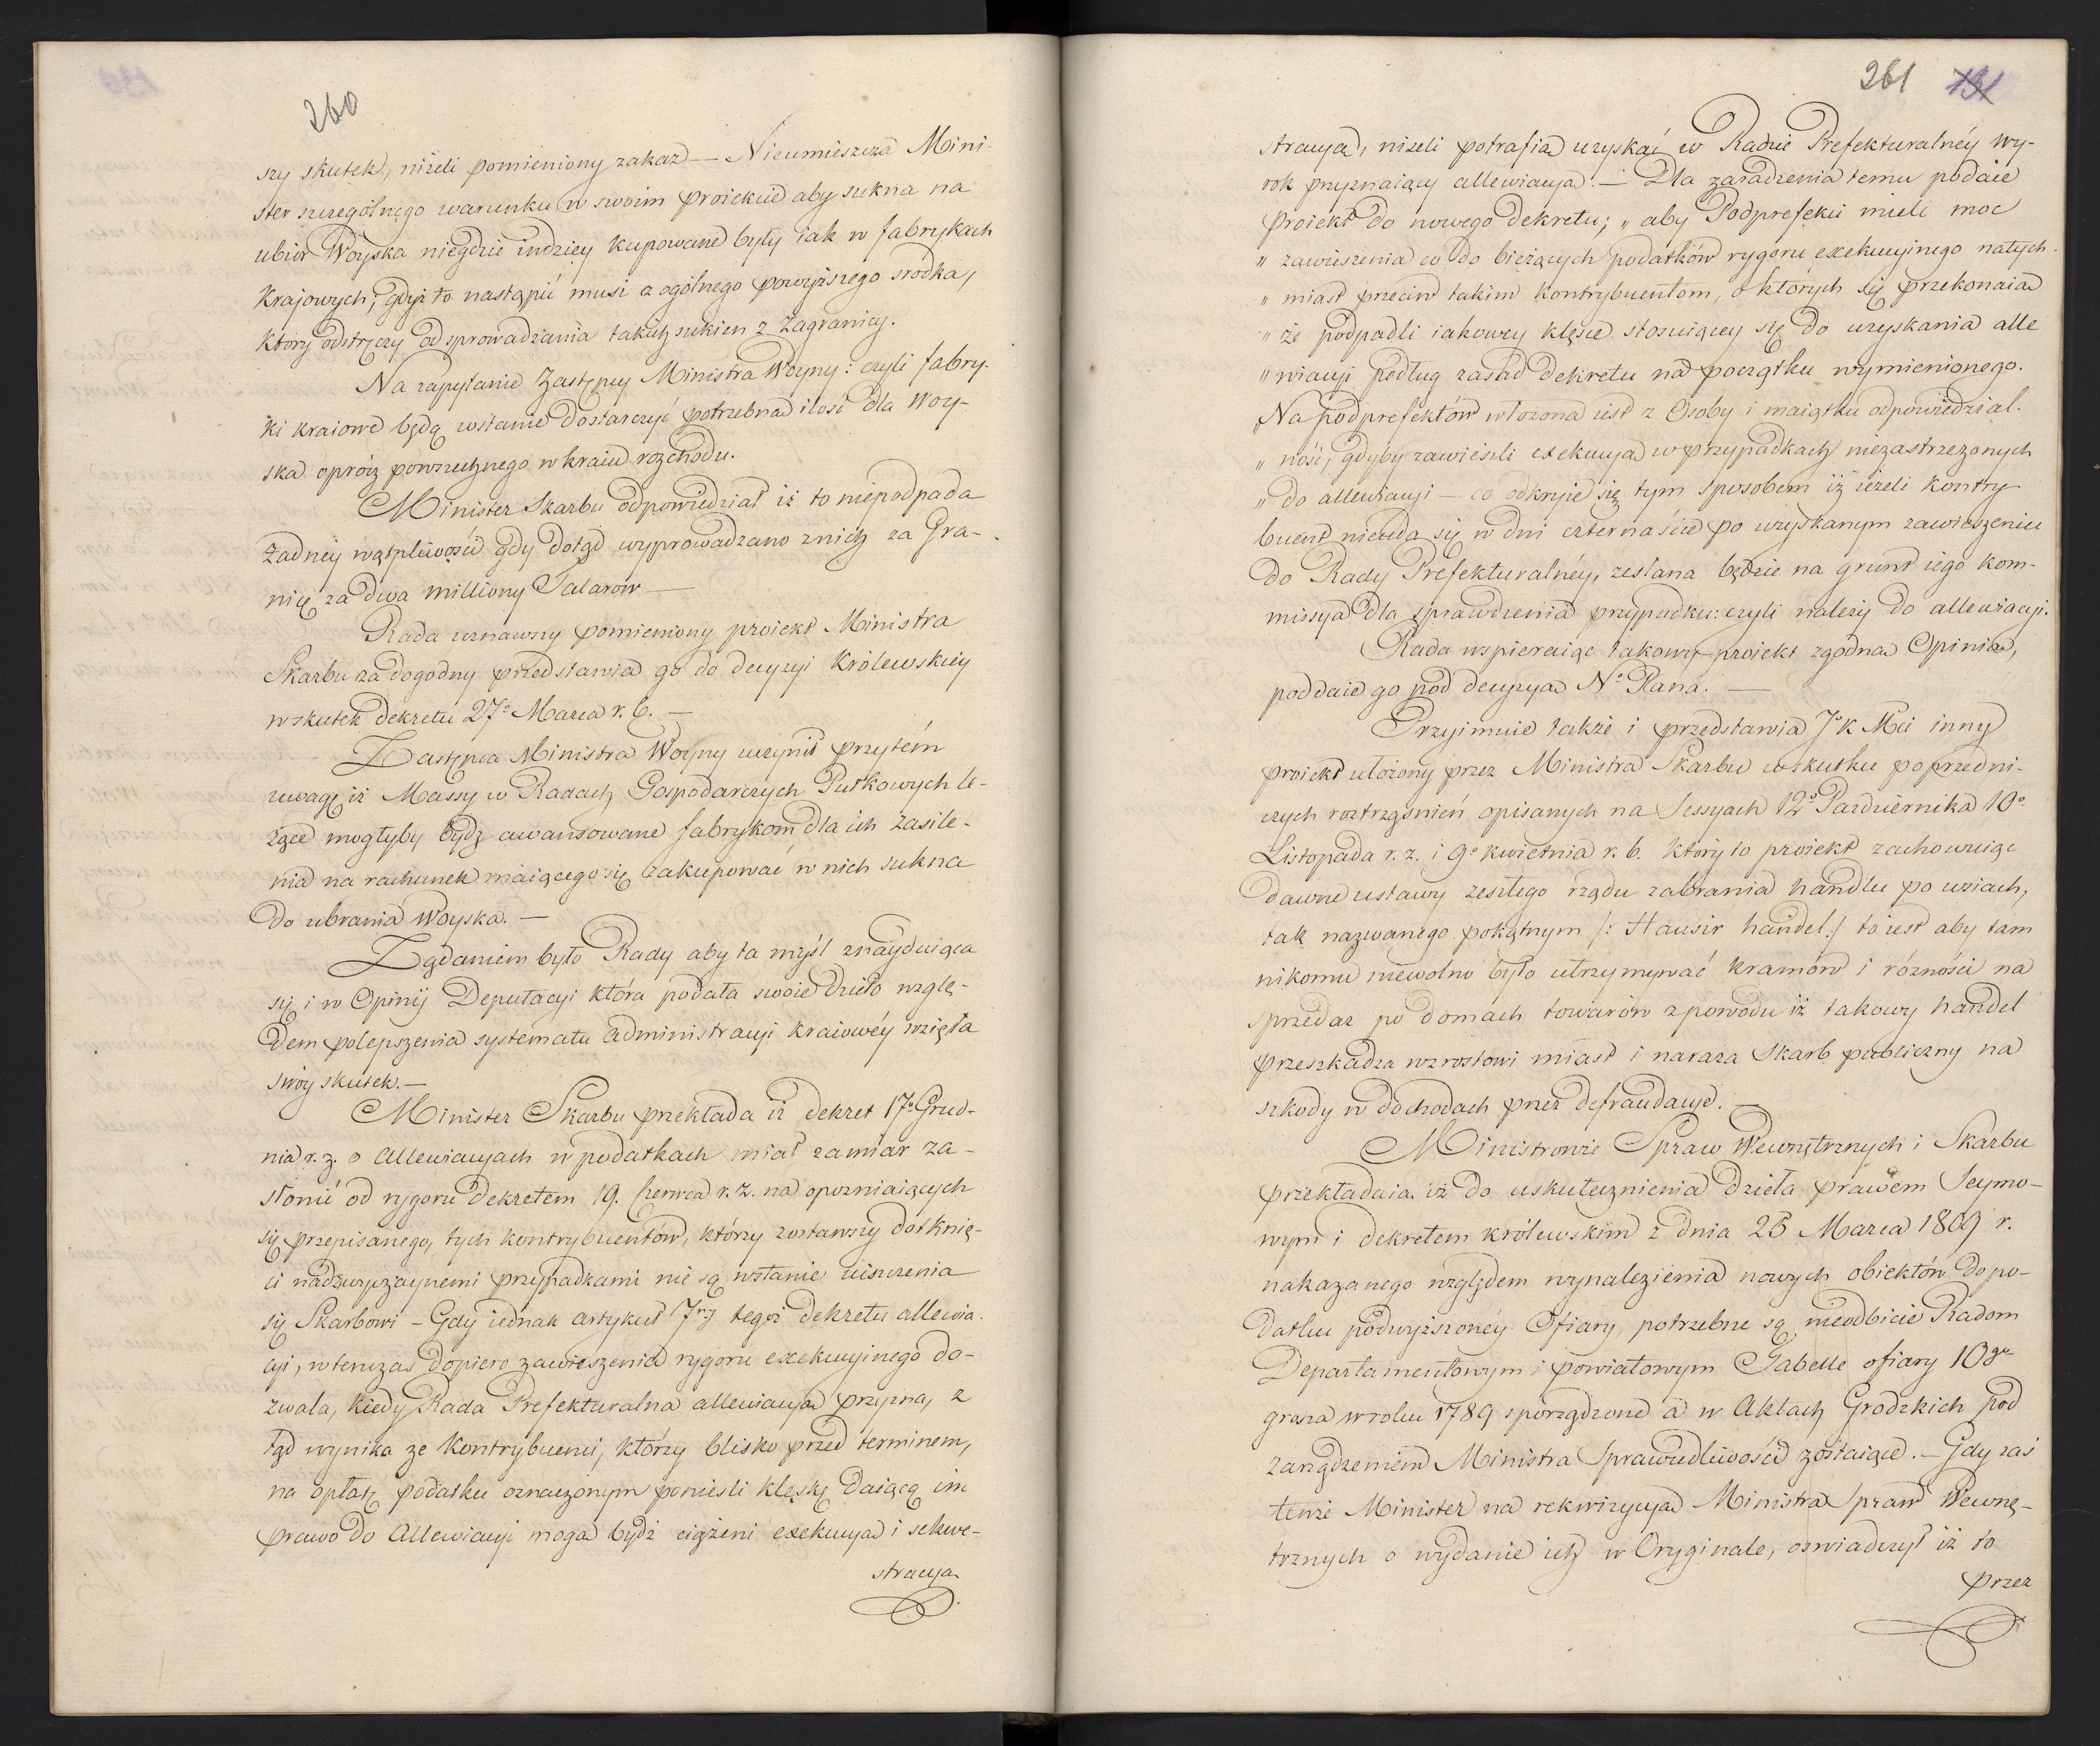 260
szy skutek, niżeli pomieniony zakaz — Nieumieszcza Mini-
ster szczególnego warunku w swoim proiekcie aby sukna na
ubiór Woyska niegdzie indziey kupowane były iak w fabrykach
Krajowych, gdyż to nastąpić musi z ogólnego powyższego srodka,
który odstręczy od sprowadzania takich sukien z Zagranicy.
Na zapytanie Zastępcy Ministra Woyny: czyli fabry-
ki kraiowe będą wstanie dostarczyć potrzebną ilość dla Woy-
ska oprócz powszechnego w kraiu rozchodu.
Minister Skarbu odpowiedział iż to niepodpada
żadney wątpliwości gdy dotąd wyprowadzano znich za Gra-
nicę za dwa milliony Talarow —
Rada uznawszy pomieniony proiekt Ministra
Skarbu za dogodny przedstawia go do decyzyi Królewskiey
wskutek dekretu 27º Marca r. b. —
Zastępca Ministra Woyny uczynił przytém
uwagę iż Massy w Radach Gospodarczych Pułkowych le-
żące mogłyby bydź awansowane fabrykom dla ich zasile-
nia na rachunek maiącego się zakupować w nich sukna
do ubrania Woyska. —
Zdaniem było Rady aby ta myśl znayduiąca
się i w Opinij Deputacyi która podała swoie dzieło wzglę-
dem polepszenia systematu administracyi kraiowéy wzięła
swóy skutek. —
Minister Skarbu przekłada iż dekret 17º Grud-
nia r. z. o Allewiacyach w podatkach miał zamiar za-
słonić od rygoru dekretem 19. Czerwca r. z. na opozniaiących
się przepisanego, tych kontrybuentów, którzy zostawszy dotknię-
ci nadzwyczaynemi przypadkami nie są wstanie uiszczenia
się Skarbowi — Gdy iednak artykuł 7my tegoż dekretu allewia-
cyi, wtenczas dopiero zawieszenia rygoru exekucyinego do-
zwala, kiedy Rada Prefekturalna allewiacyą przyzna, z
tąd wynika ze Kontrybuenci, którzy blisko przed terminem,
na opłatę podatku oznaczonym ponieśli klęskę daiącą im
prawo do Allewiacyi mogą bydź ciążeni exekucyą i sekwe-
stracyą
261 131
stracyą, niżeli potrafią uzyskać w Radzie Prefekturalnéy wy-
rok przyznaiący allewiacyą. — Dla zaradzenia temu podaie
proiekt do nowego dekretu; „ aby Podprefekci mieli moc
„ zawieszenia co do bieżących podatków rygoru exekucyinego natych-
„ miast przeciw takim kontrybuentom, o których się przekonaią
„ że podpadli iakowey klęsce stosuiącey się do uzyskania alle
„ wiacyi podług zasad dekretu na początku wymienionego.
„ Na podprefektów włożona iest z Osoby i maiątku odpowiedzial-
„ ność, gdyby zawiesili exekucyą w przypadkach niezastrzeżonych
„ do allewiacyi — co odkryie się tym sposobem iż ieżeli kontry
buent nieuda się w dni czternaście po uzyskanym zawieszeniu
do Rady Prefekturalnéy, zesłana będzie na grunt iego kom-
missya dla sprawdzenia przypadku: czyli należy do allewiacyi.
Rada wspieraiąc takowy proiekt zgodną Opinią,
poddaie go pod decyzyą Nº Pana. —
Przyimuie także i przedstawia Jk Mci inny
proiekt ułożony przez Ministra Skarbu wskutku poprzedni-
czych roztrząsnień opisanych na Sessyach 12º Pazdziernika 10º
Listopada r. z. i 9º kwietnia r. b. który to proiekt zachowuiąc
dawne ustawy zeszłego rządu zabrania handlu po wsiach,
tak nazwanego pokątnym /: Hausir handel :/ to iest aby tam
nikomu niewolno było utrzymywać kramów i różności na
sprzedaz po domach towarów z powodu iż takowy handel
przeszkadza wzrostowi miast i naraża Skarb publiczny na
szkody w dochodach przez defraudacye. —
Ministrowie Spraw Wewnętrznych i Skarbu
przekładaią iż do uskutecznienia dzieła prawem Seymo-
wym i dekretem królewskim z dnia 25 Marca 1809 r.
nakazanego względem wynalezienia nowych obiektów do po-
datku podwyższonéy Ofiary, potrzebne są nieodbicie Radom
Departamentowym i powiatowym Tabelle ofiary 10go
grosza w roku 1789 sporządzone a w Aktach Grodzkich pod
zarządzeniem Ministra Sprawiedliwości zostaiące. — Gdy zaś
tenże Minister na rekwizycyą Ministra Spraw Wewnę-
trznych o wydanie ich w Oryginale, oswiadczył iż to
przez